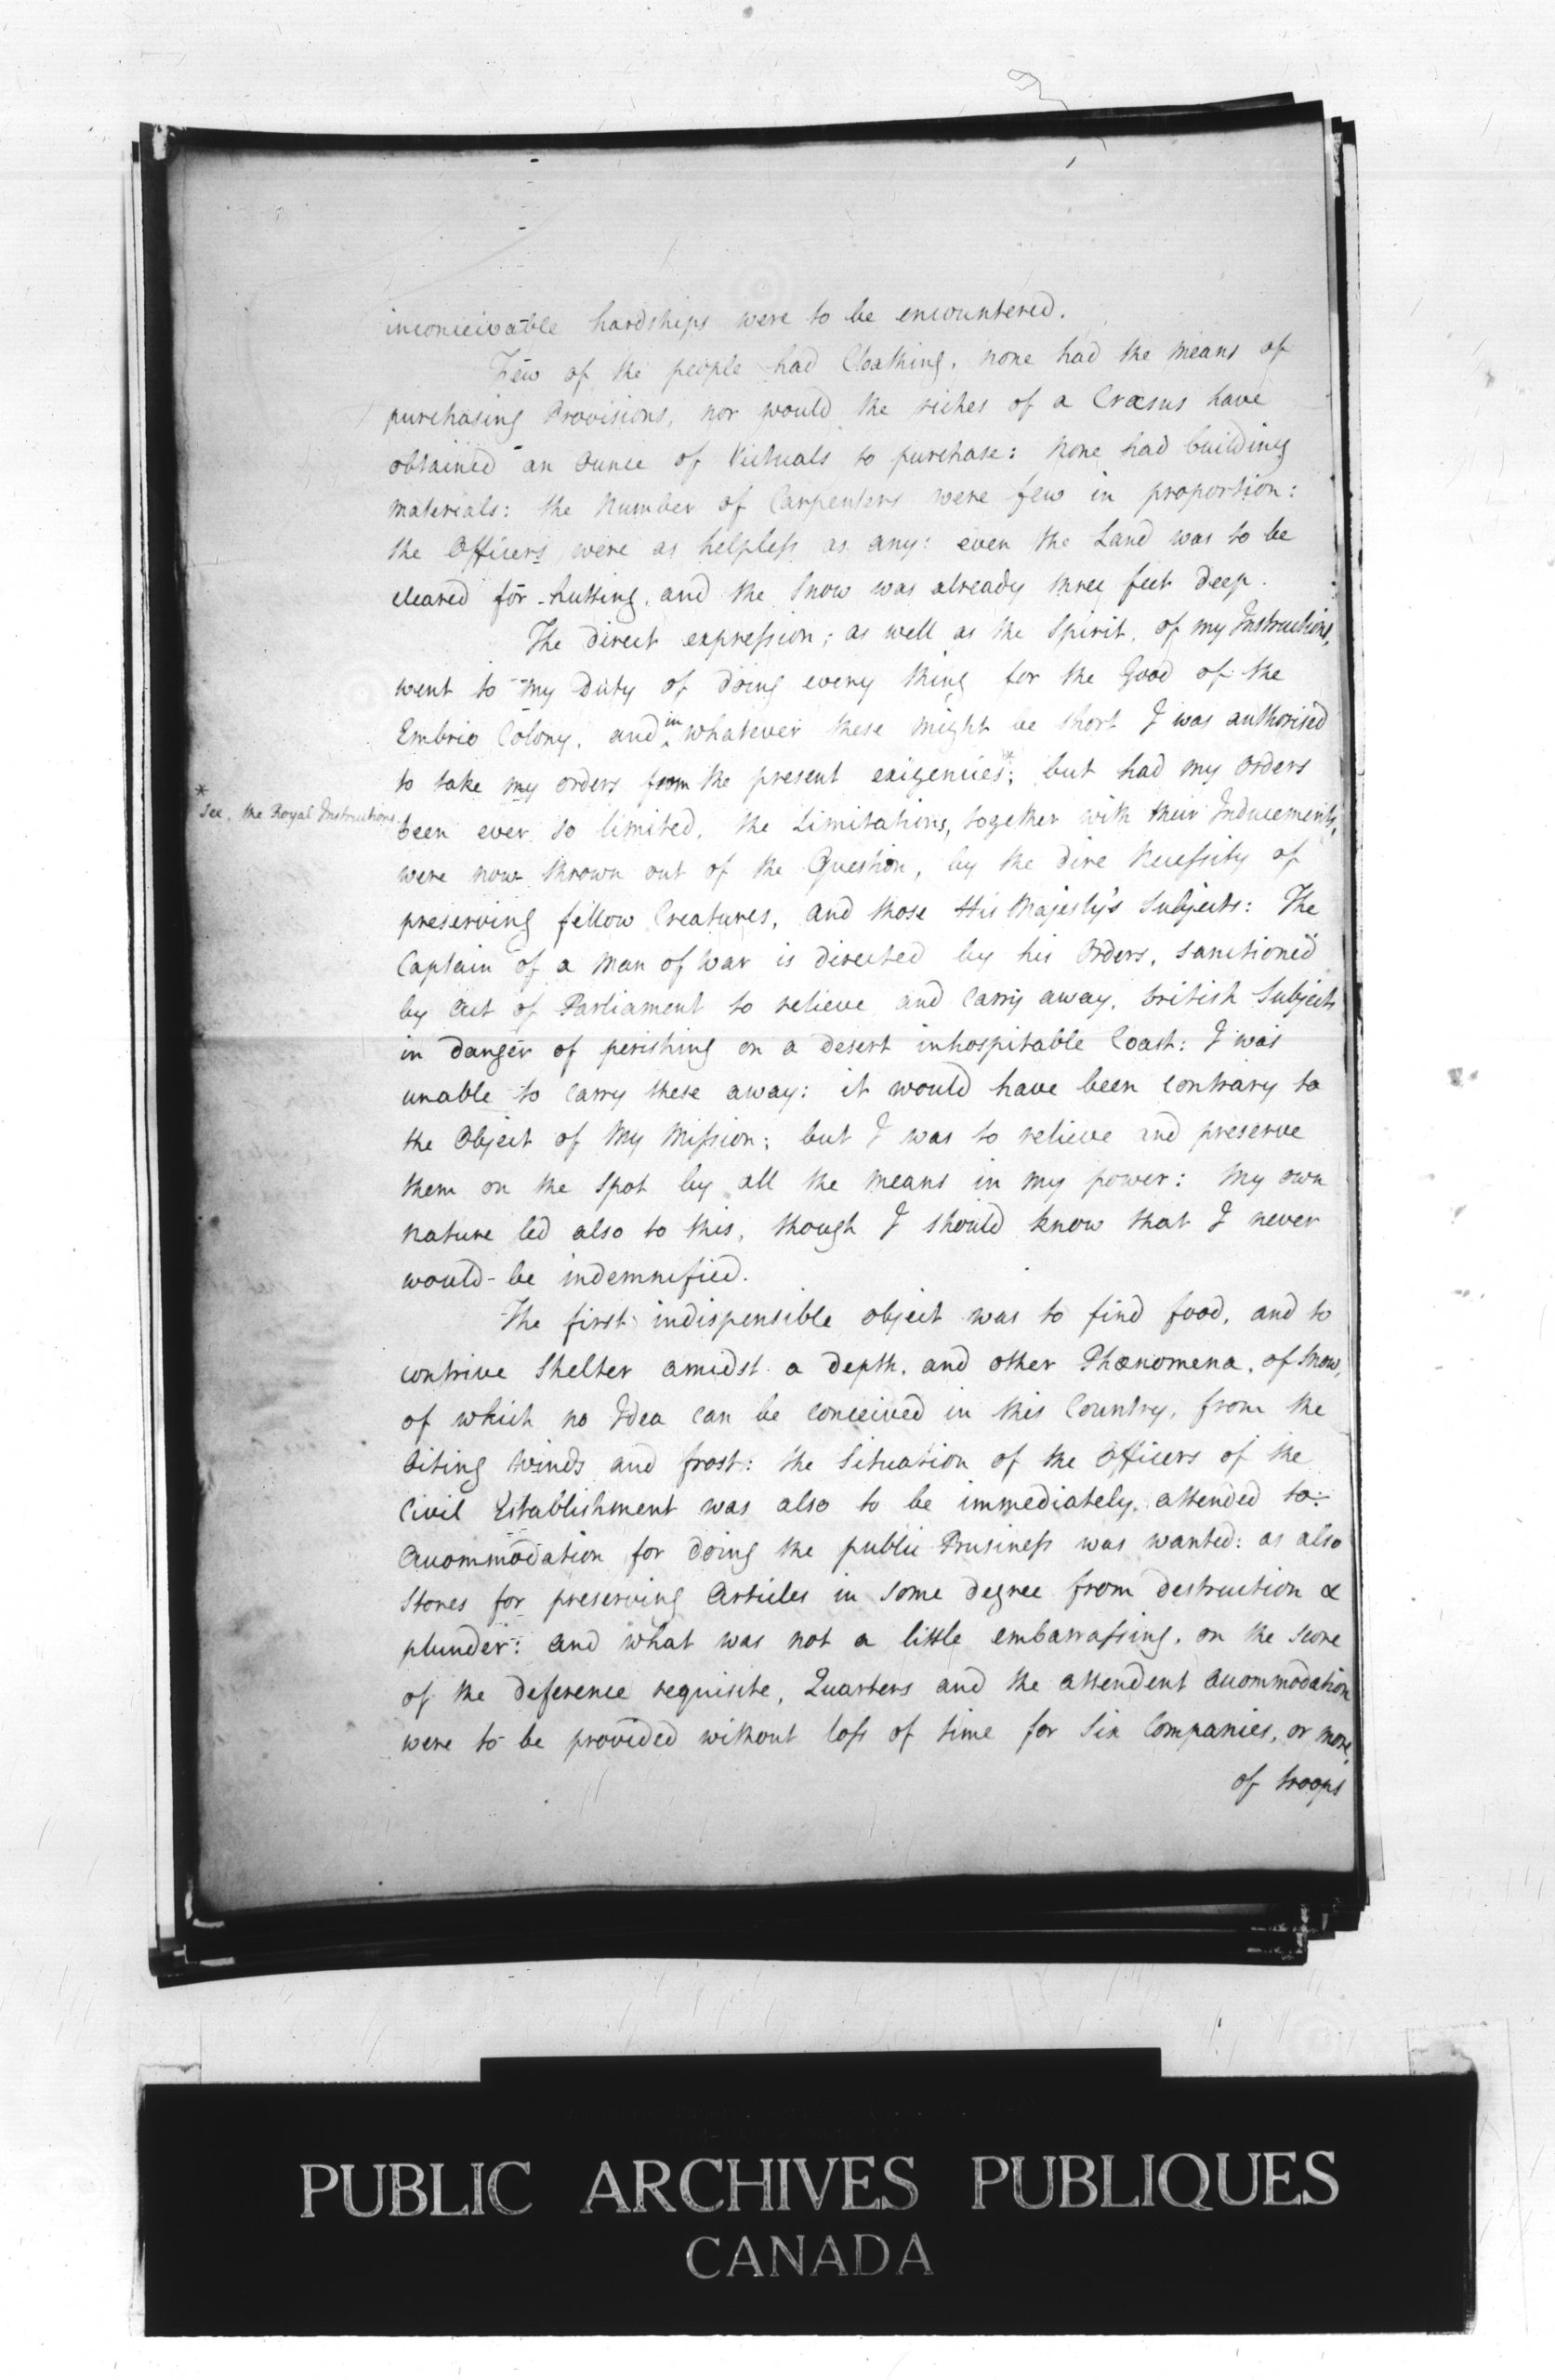 inconceivable hardships were to be encountered.
Few of the people had Cloathing, none had the means of
purchasing Provisions, nor would the riches of a Crœsus have
obtained an Ounce of Victuals to purchase: None had building
materials: the Number of Carpenters were few in proportion:
the Officers were as helpless as any: even the Land was to be
cleared for hutting, and the Snow was already three feet deep.
The direct expression, as well as the Spirit, of my Instructions,
went to my Duty of doing every thing for the Good of the
Embrio Colony, and in whatever these might be short I was authorised
to take my orders from the present exigencies*; but had my Orders
* See, the Royal Instructions.
been ever so limited, the Limitations, together with their Inducements,
were now thrown out of the Question, by the dire Necessity of
preserving fellow Creatures, and those His Majesty's Subjects: The
Captain of a Man of War is directed by his Orders, sanctioned
by Act of Parliament to relieve and carry away, British Subjects
in danger of perishing on a desert inhospitable Coast: I was
unable to carry these away: it would have been contrary to
the Object of My Mission; but I was to relieve and preserve
them on the spot by all the means in my power: My own
nature led also to this, though I should know that I never
would be indemnified.
The first indispensible object was to find food, and to
contrive Shelter amidst a depth, and other Phœnomena, of Snow,
of which no Idea can be conceived in this Country, from the
biting Winds and frost: the Situation of the Officers of the
Civil Establishment was also to be immediately attended to:
Accommodation for doing the public Business was wanted: as also
Stores for preserving Articles in some degree from destruction &
plunder: and what was not a little embarrassing, on the score
of the deference requisite, Quarters and the attendent accommodation
were to be provided without loss of time for Six Companies, or more,
of troops
PUBLIC ARCHIVES PUBLIQUES
CANADA